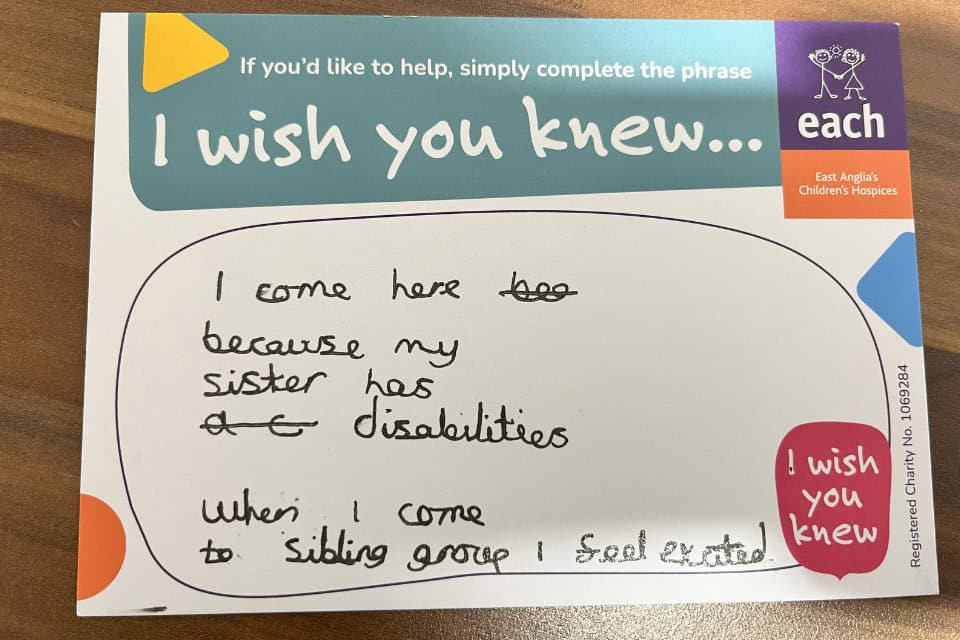 If you'd like to help, simply complete the phrase
I wish you knew...
each
East Anglia's
Children's Hospices
I come here bea
because my
sister has
a c disabilities
When I come
to sibling group I feel exated
I wish
you
knew
Registered Charity No. 1069284